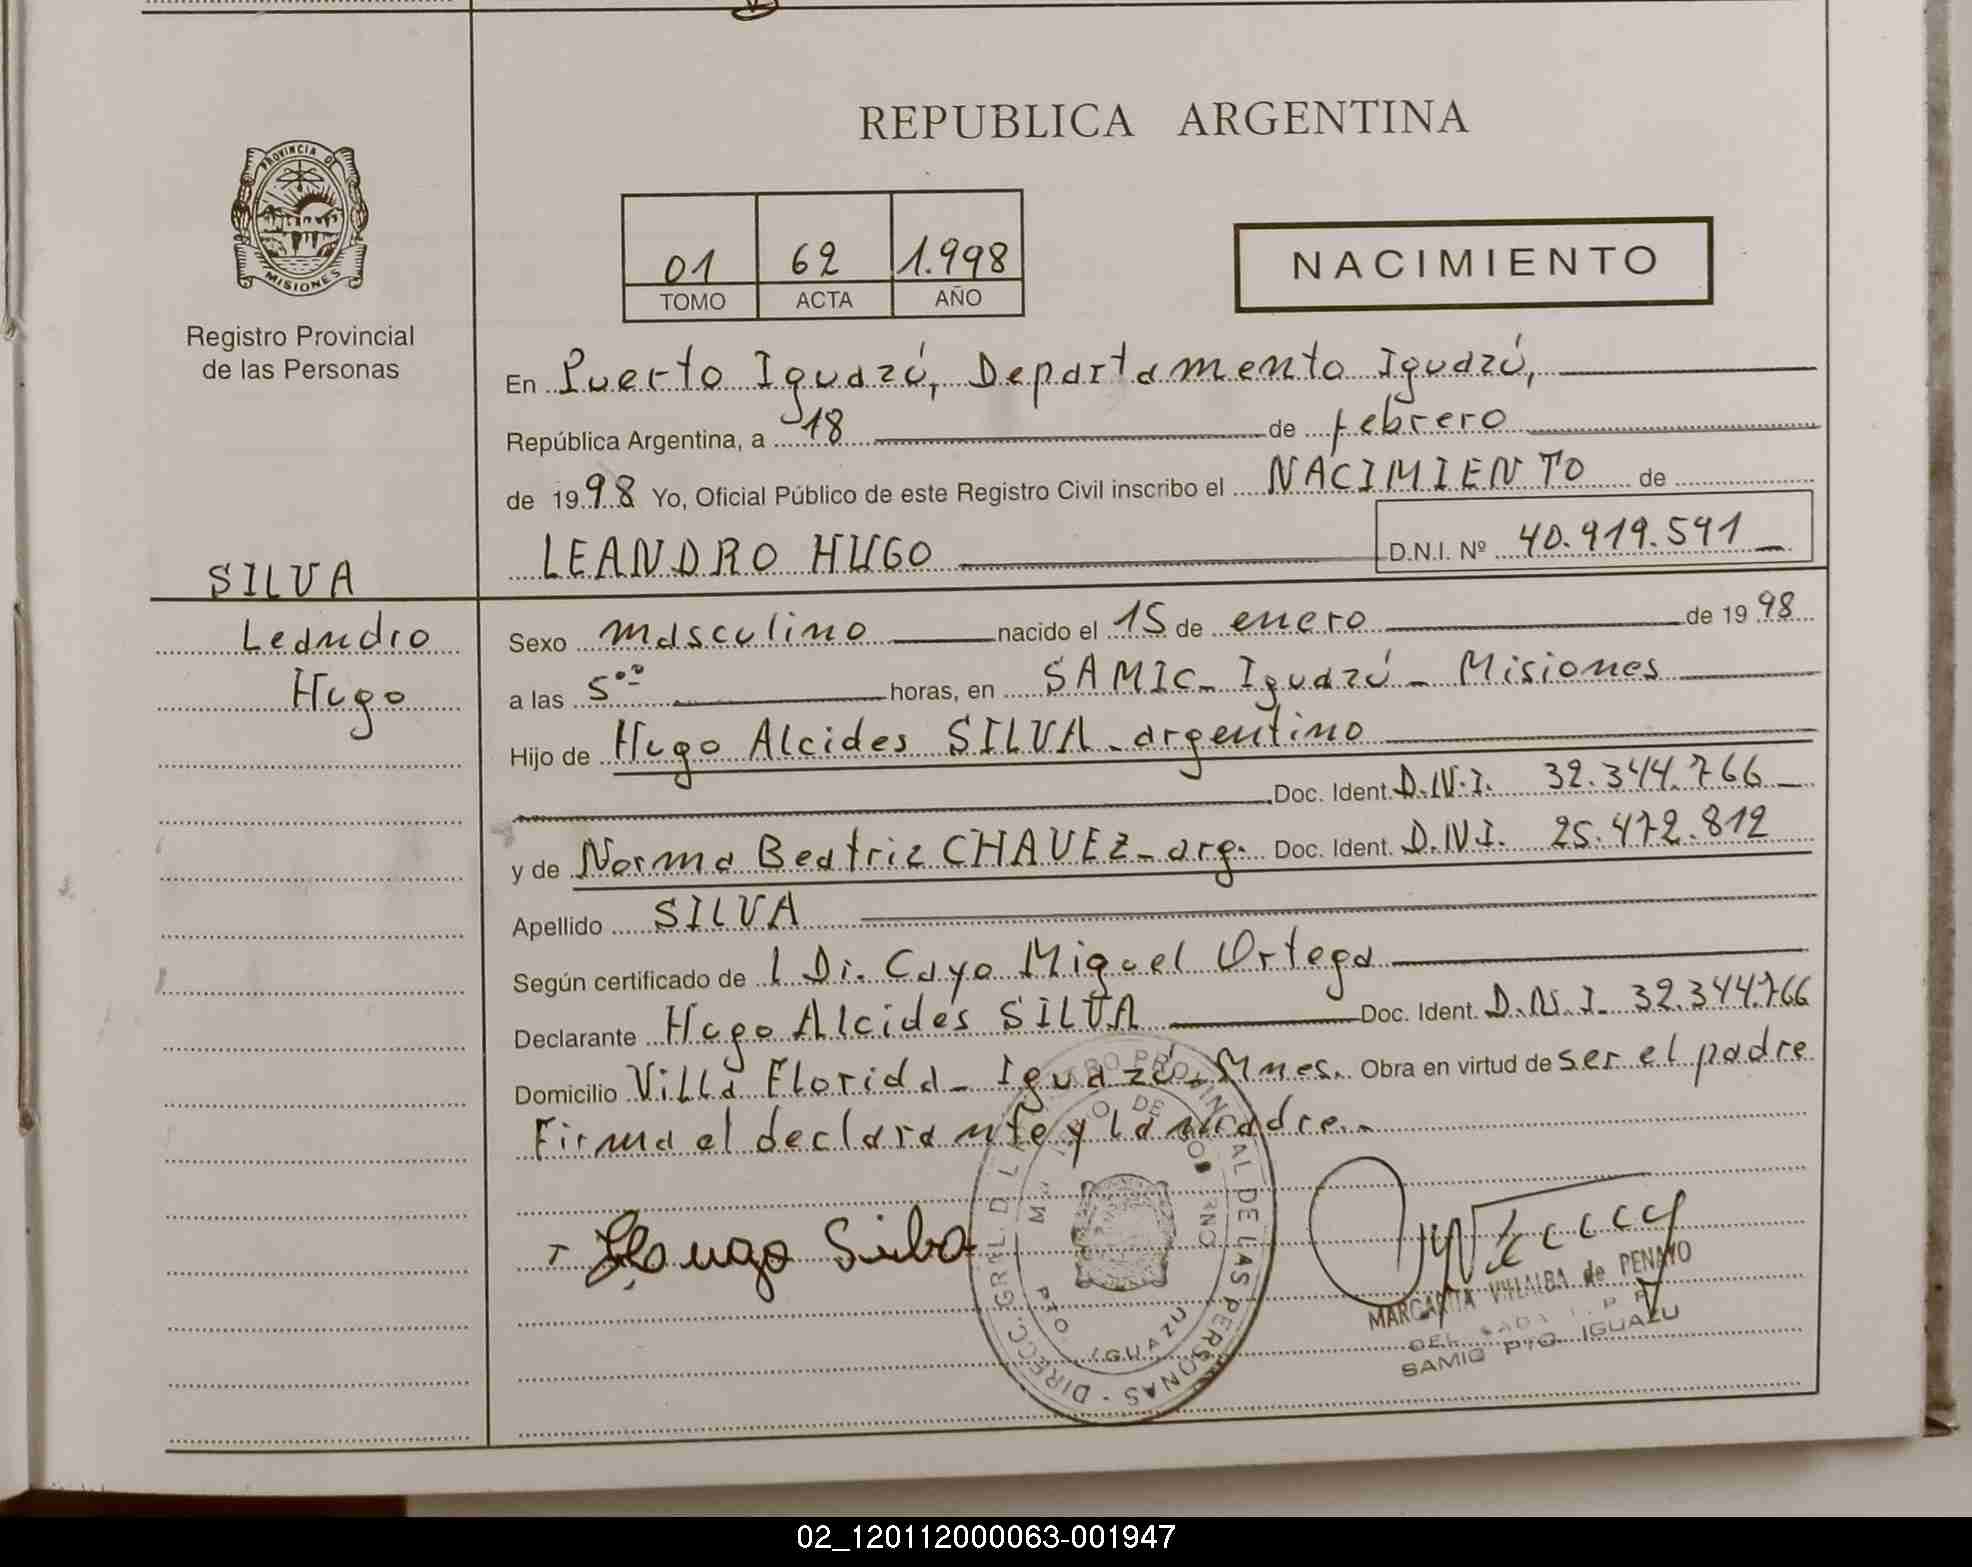 REPUBLICA ARGENTINA
PROVINCIA DE
MISIONES
Registro Provincial
de las Personas
01 62 1.998
TOMO ACTA AÑO
NACIMIENTO
En Puerto Iguazú, Departamento Iguazú,
República Argentina, a 18 de febrero
de 1998 Yo, Oficial Público de este Registro Civil inscribo el NACIMIENTO de
LEANDRO HUGO D.N.I. Nº 40.919.591
SILVA
Leandro
Hugo
Sexo masculino nacido el 15 de enero de 1998
a las 5⁰⁰ horas, en SAMIC- Iguazú - Misiones
Hijo de Hugo Alcides SILVA - argentino
Doc. Ident. D.N.I. 32.344.766
y de Norma Beatriz CHAVEZ - arg. Doc. Ident. D.N.I. 25.472.812
Apellido SILVA
Según certificado de l Dr. Cayo Miguel Ortega
Declarante Hugo Alcides SILVA Doc. Ident. D.N.I. 32.344.766
Domicilio Villa Florida - Iguazú - Mnes. Obra en virtud de ser el padre
Firma el declarante y la madre.-
Silva
DIRECC. GRAL. DEL REGISTRO PROVINCIAL DE LAS PERSONAS
PTO IGUAZU
MARGARITA VILLALBA de PENAYO
SAMIC PTO. IGUAZU
02_120112000063-001947